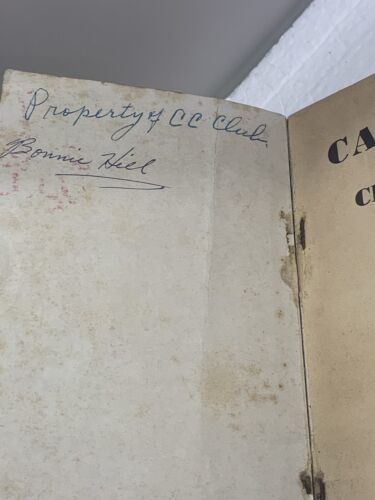 Property of CC Club
Bonnie Hill
CA
C